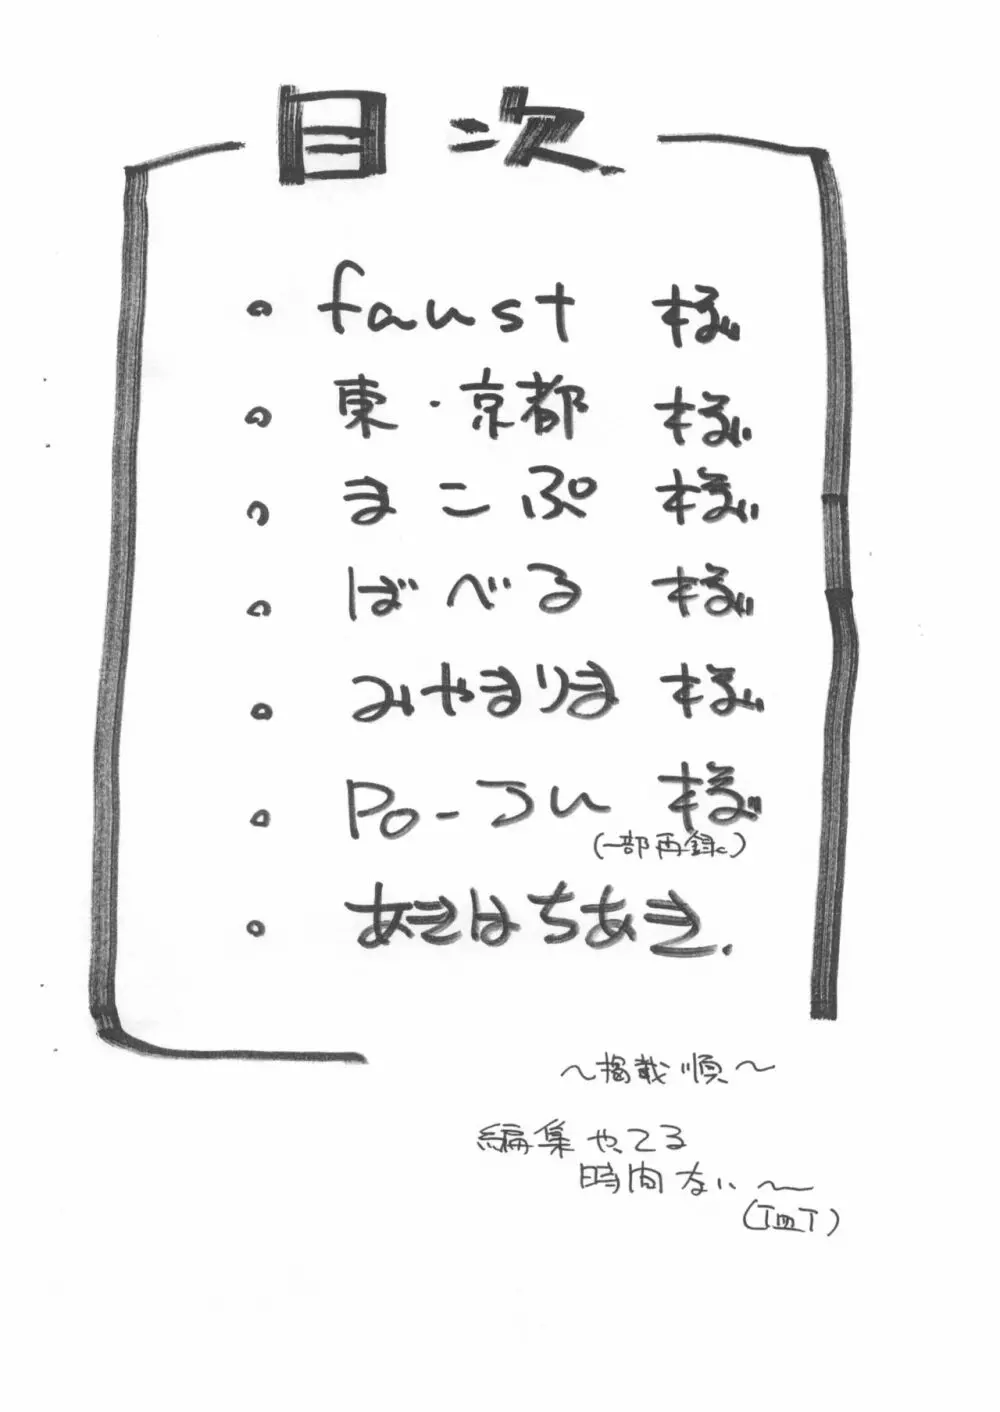 目次
・faust 様
・東・京都 様
・まこぷ 様
・ばべる 様
・みやまりま 様
・Po-じゅ 様
(一部再録)
・あきはちあき.
～掲載順～
編集やってる
時間ない～
(T皿T)